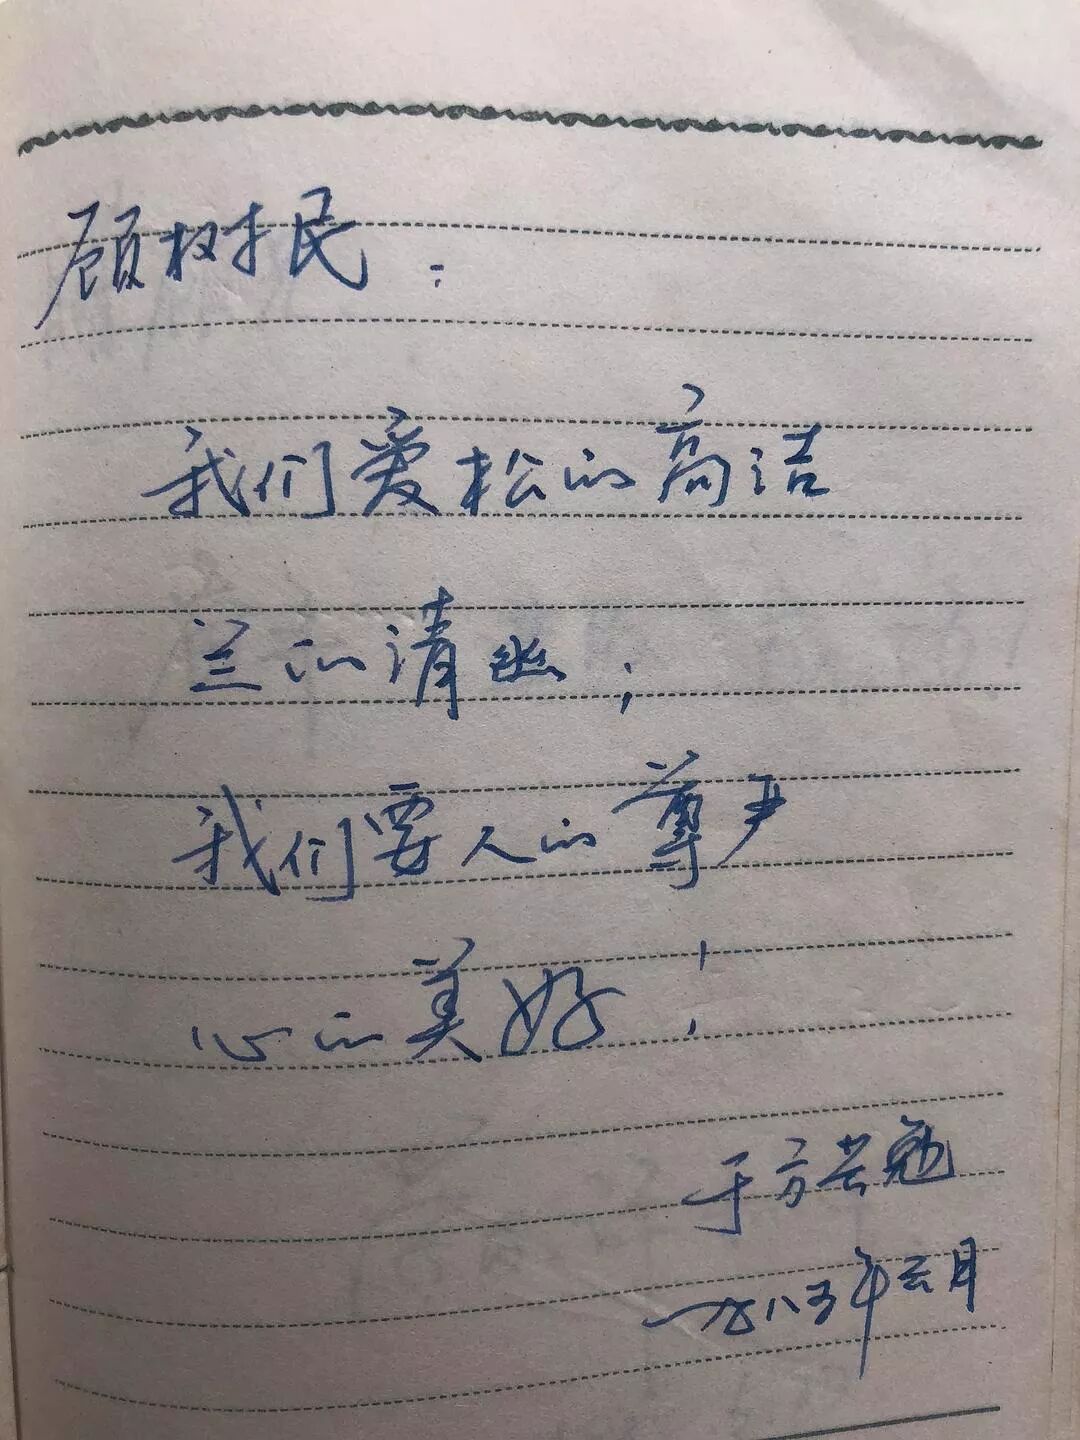 顾树民：
我们爱松的高洁
兰的清幽；
我们要人的尊严
心的美好！
于方共勉
一九八五年六月